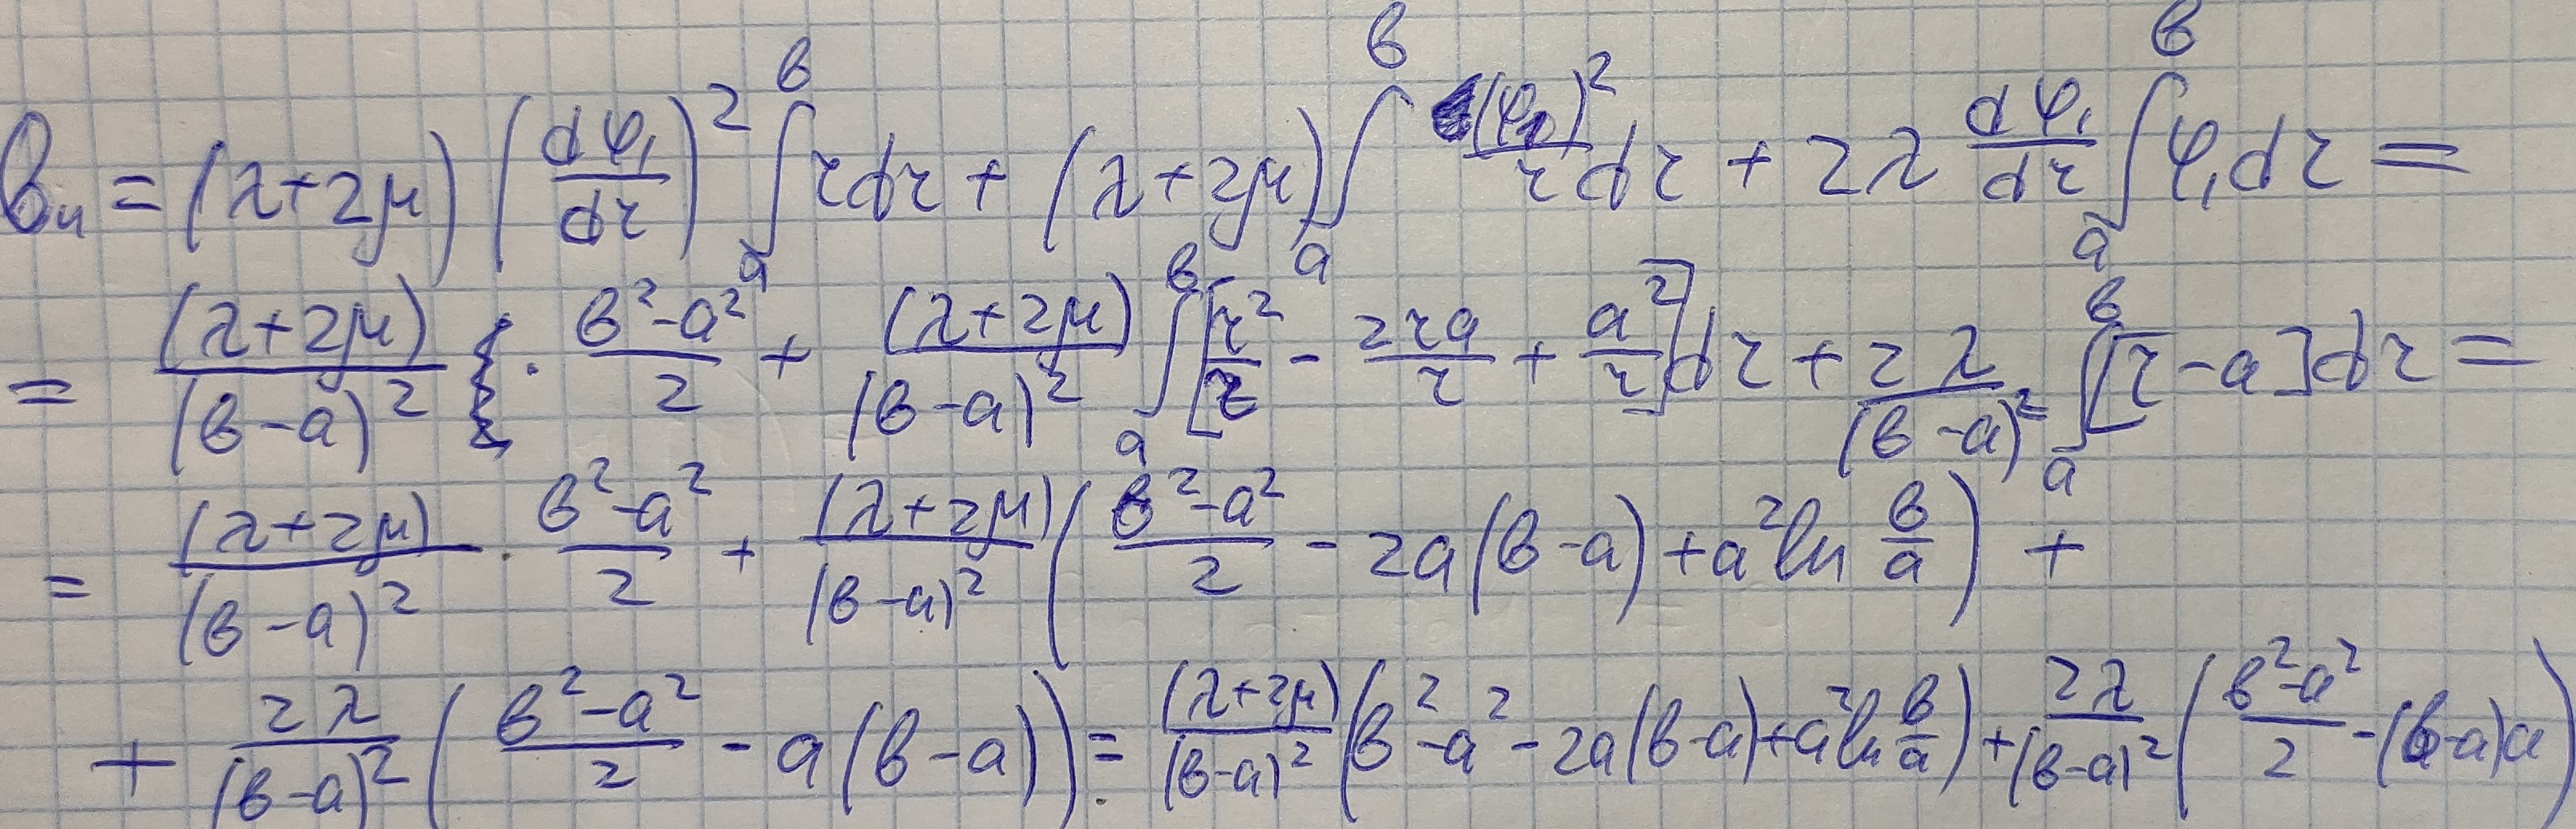 b₁₁ = (λ+2μ) (dφ₁/dr)² ∫ₐᵇ r dr + (λ+2μ) ∫ₐᵇ (φ₁)²/r dr + 2λ dφ₁/dr ∫ₐᵇ φ₁ dr =
= (λ+2μ)/(b-a)² · (b²-a²)/2 + (λ+2μ)/(b-a)² ∫ₐᵇ [r²/r - 2ra/r + a²/r] dr + 2λ/(b-a)² ∫ₐᵇ [r-a] dr =
= (λ+2μ)/(b-a)² · (b²-a²)/2 + (λ+2μ)/(b-a)² ((b²-a²)/2 - 2a(b-a) + a² ln b/a) +
+ 2λ/(b-a)² ((b²-a²)/2 - a(b-a)) = (λ+2μ)/(b-a)² (b²-a² - 2a(b-a) + a² ln b/a) + 2λ/(b-a)² ((b²-a²)/2 - (b-a)a)